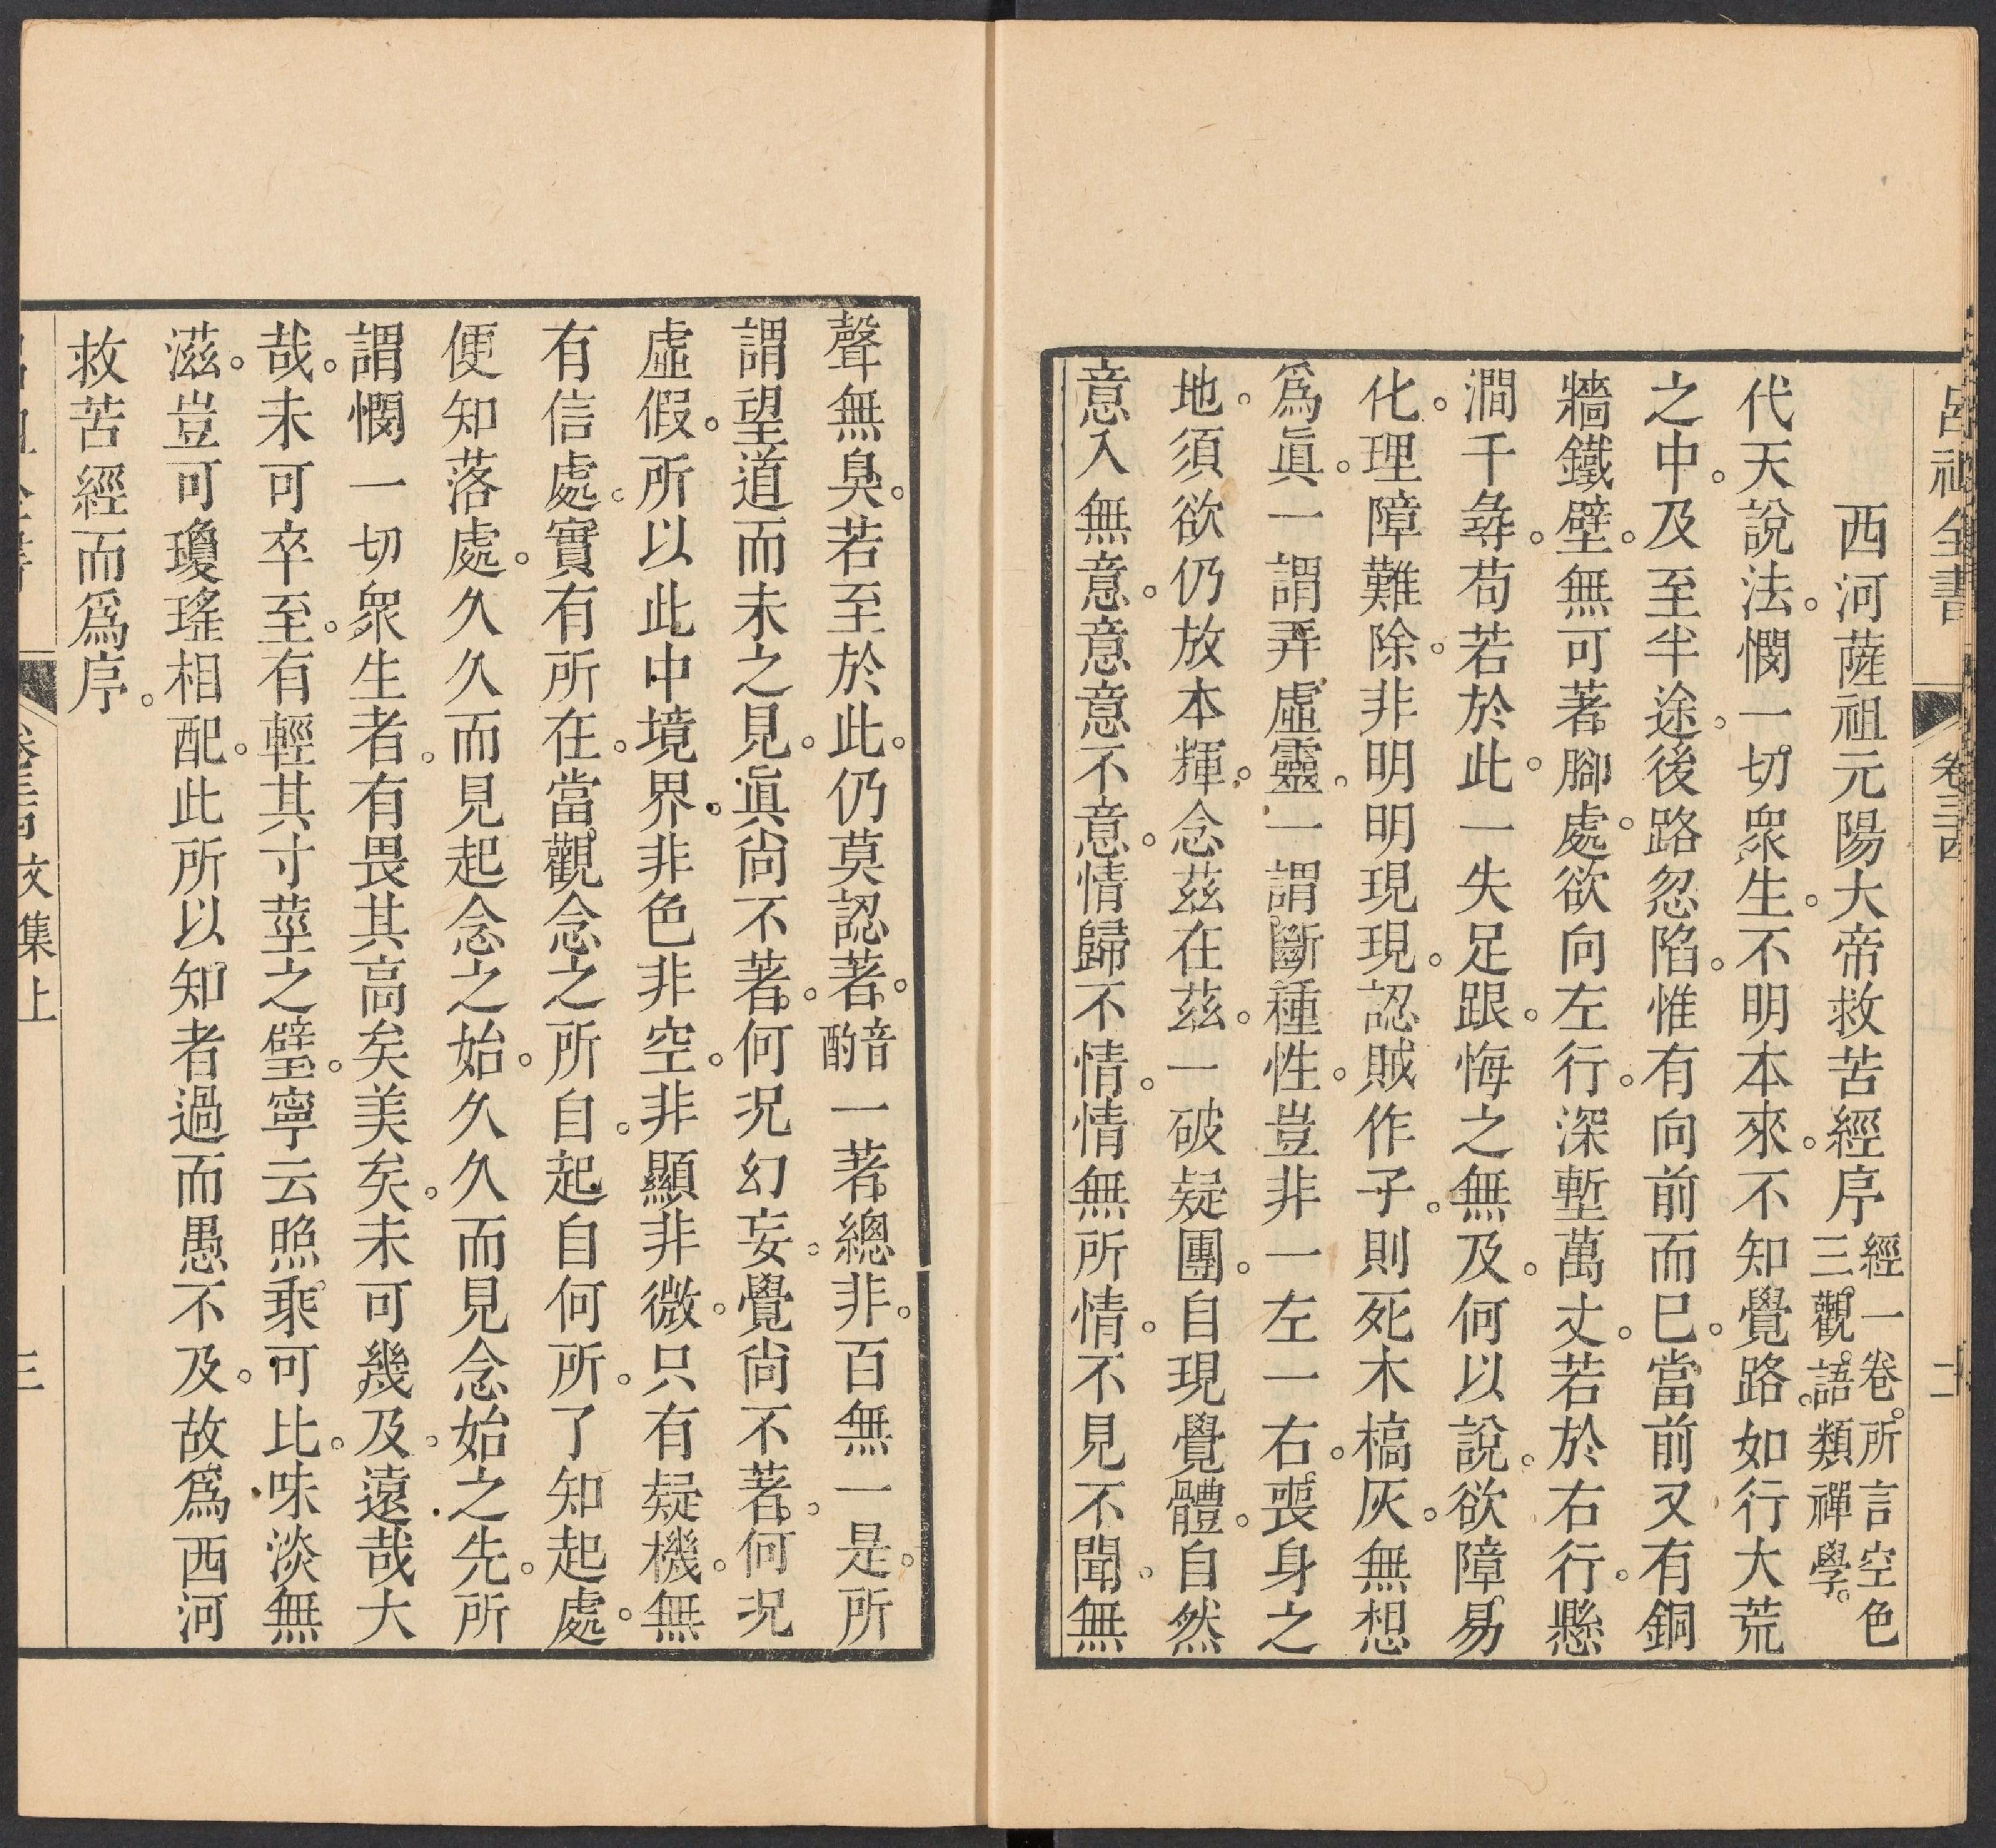 呂祖全書 卷三十四 二
西河薩祖元陽大帝救苦經序 經一卷。所言空色三觀。語類禪學。
代天說法。憫一切衆生。不明本來。不知覺路。如行大荒
之中。及至半途。後路忽陷。惟有向前而已。當前又有銅
牆鐵壁。無可著腳處。欲向左行。深塹萬丈。若於右行。懸
澗千尋。苟若於此。一失足跟。悔之無及。何以說。欲障易
化。理障難除。非明明現現。認賊作子。則死木槁灰。無想
爲眞。一謂弄虛靈。一謂斷種性。豈非一左一右。喪身之
地。須欲仍放本輝。念茲在茲。一破疑團。自現覺體。自然
意入無意。意意不意。情歸不情。情無所情。不見不聞。無
聲無臭。若至於此。仍莫認著。音酌一著總非。百無一是。所
謂望道而未之見。眞尙不著。何況幻妄。覺尙不著。何況
虛假。所以此中境界。非色非空。非顯非微。只有疑機。無
有信處。實有所在。當觀念之所自。起自何所。了知起處。
便知落處。久久而見起念之始。久久而見念始之先。所
謂憫一切衆生者。有畏其高矣美矣。未可幾及。遠哉大
哉。未可卒至。有輕其寸莖之璧。寧云照乘可比。味淡無
滋。豈可瓊瑤相配。此所以知者過而愚不及。故爲西河
救苦經而爲序。
文集上 三